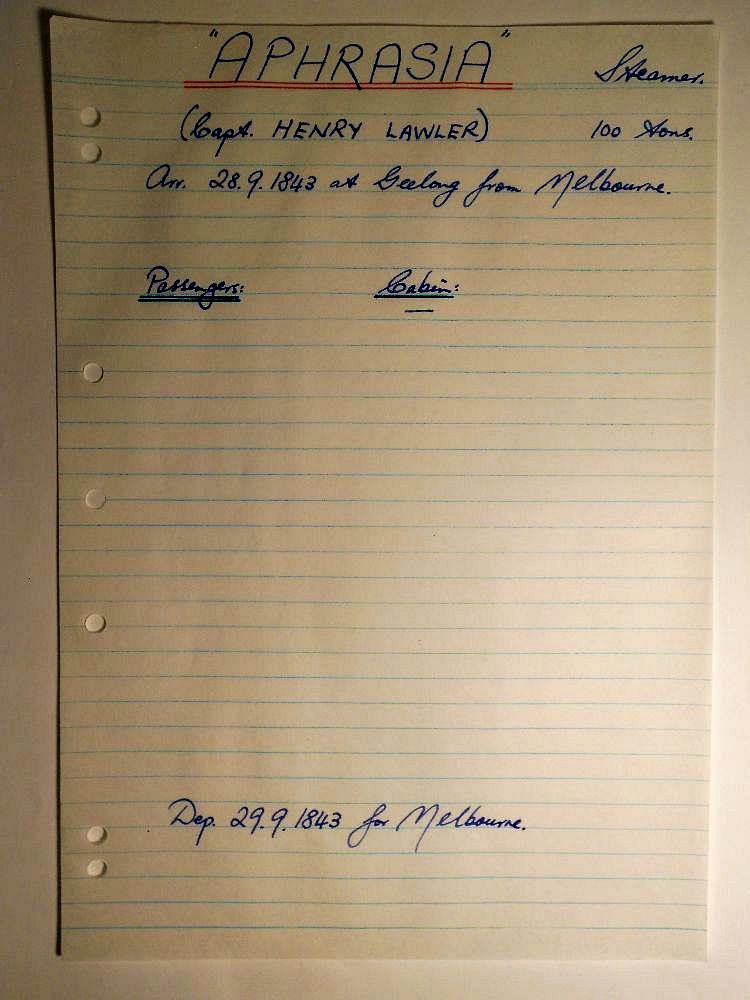 "APHRASIA" Steamer.
(Capt. HENRY LAWLER) 100 Tons.
Arr. 28.9.1843 at Geelong from Melbourne.
Passengers: Cabin:
—
Dep. 29.9.1843 for Melbourne.